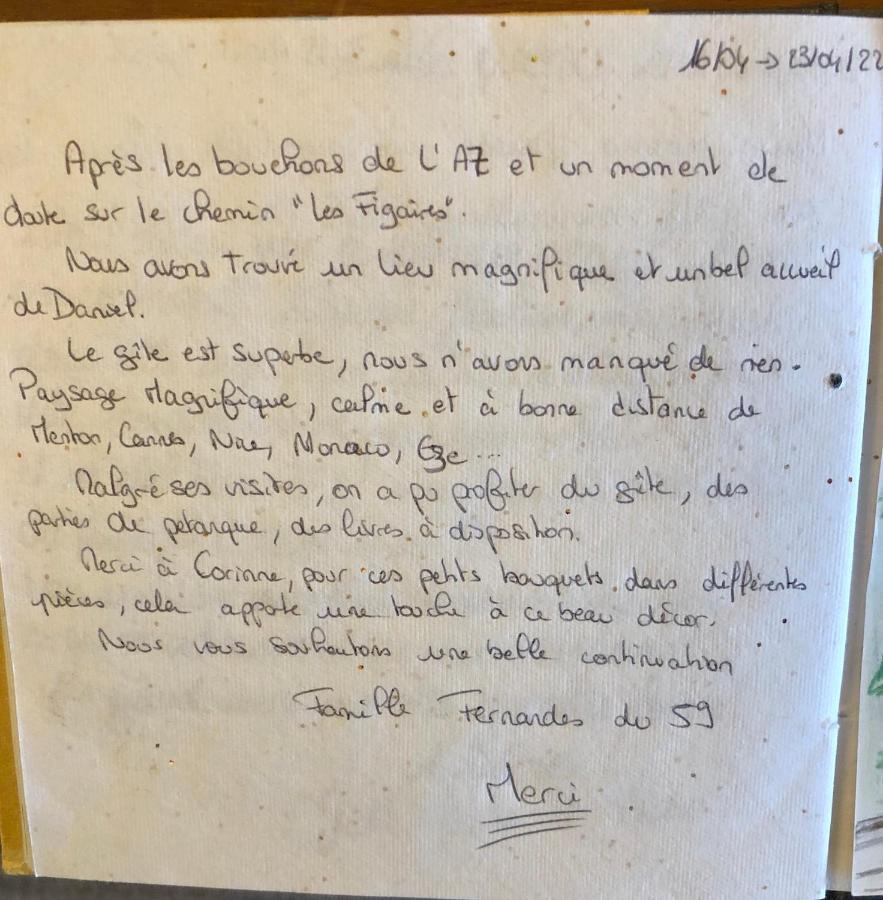 16/04 → 23/04/22
Après les bouchons de l'A7 et un moment de
doute sur le chemin "Les Figaires".
Nous avons trouvé un lieu magnifique et un bel accueil
de Daniel.
Le gîte est superbe, nous n'avons manqué de rien.
Paysage Magnifique, calme et à bonne distance de
Menton, Cannes, Nice, Monaco, Eze ...
Malgré ses visites, on a pu profiter du gîte, des
parties de petanque, des livres à disposition.
Merci à Corinne, pour ces petits bouquets dans différentes
pièces, cela apporte une touche à ce beau décor.
Nous vous souhaitons une belle continuation
Famille Fernandes du 59
Merci